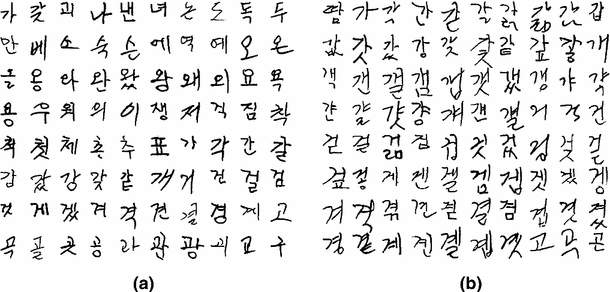 가 칼 괴 나 낸 녀 논 도 독 두
만 베 소 숙 슨 에 역 예 오 온
올 옹 와 완 왔 왕 왜 외 요 욕
용 우 워 의 이 쟁 저 직 짐 착
책 첫 체 촌 추 표 가 각 간 갈
갑 값 강 갖 같 개 거 건 걸 검
것 게 겠 겨 격 견 결 경 계 고
곡 골 곳 공 과 관 광 괴 교 구
(a)
땀 가 각 간 갇 갈 갉 갊 감 갑
값 갓 갔 강 갖 갗 같 갚 갛 개
객 갠 갤 갬 갭 갯 갰 갱 갸 갹
갼 걀 걋 걍 걔 걘 걜 거 걱 건
걷 걸 걺 검 겁 것 겄 겅 겆 겉
겊 겋 게 겐 겔 겜 겝 겟 겠 겡
겨 격 겪 견 겯 결 겸 겹 겻 겼
경 곁 계 곈 곌 곕 곗 고 곡 곤
(b)